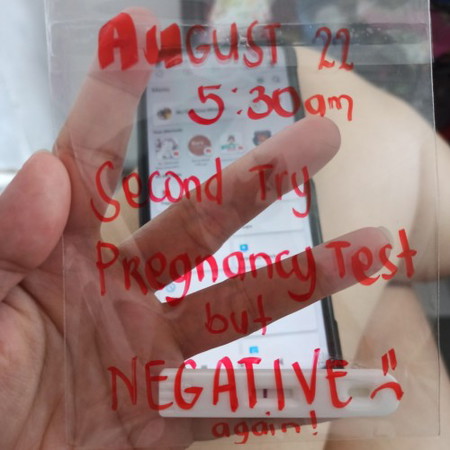 AUGUST 22
5:30am
Second Try
Pregnancy Test
but
NEGATIVE
again!